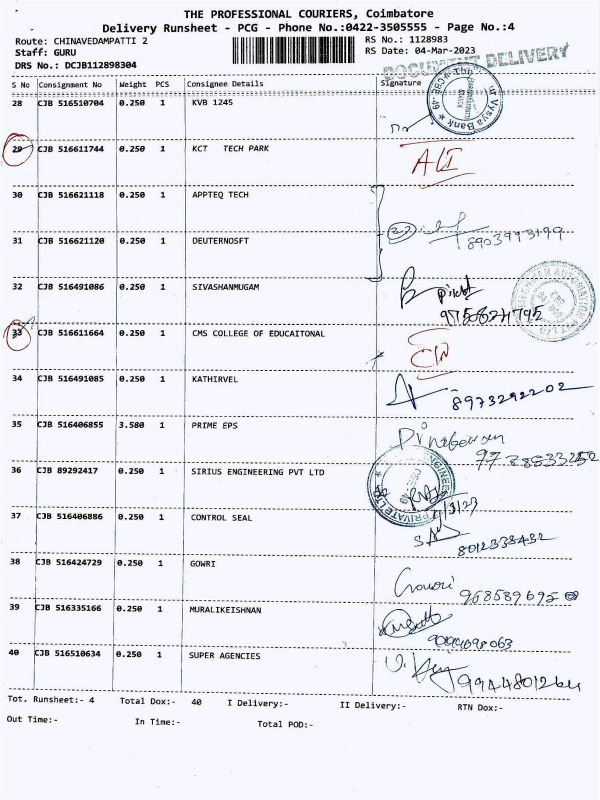 THE PROFESSIONAL COURIERS, Coimbatore
Delivery Runsheet - PCG - Phone No.:0422-3505555 - Page No.:4
Route: CHINAVEDAMPATTI 2 RS No.: 1128983
Staff: GURU RS Date: 04-Mar-2023
DRS No.: DCJB112898304
DOCUMENT DELIVERY
S No Consignment No Weight PCS Consignee Details Signature
28 CJB 516510704 0.250 1 KVB 1245
29 CJB 516611744 0.250 1 KCT TECH PARK
30 CJB 516621118 0.250 1 APPTEQ TECH
31 CJB 516621120 0.250 1 DEUTERNOSFT 8903993199
32 CJB 516491086 0.250 1 SIVASHANMUGAM
33 CJB 516611664 0.250 1 CMS COLLEGE OF EDUCAITONAL
34 CJB 516491085 0.250 1 KATHIRVEL 8973292202
35 CJB 516406855 3.580 1 PRIME EPS
36 CJB 89292417 0.250 1 SIRIUS ENGINEERING PVT LTD
37 CJB 516406886 0.250 1 CONTROL SEAL
38 CJB 516424729 0.250 1 GOWRI Gowri
39 CJB 516335166 0.250 1 MURALIKEISHNAN
40 CJB 516510634 0.250 1 SUPER AGENCIES
Tot. Runsheet:- 4 Total Dox:- 40 I Delivery:- II Delivery:- RTN Dox:-
Out Time:- In Time:- Total POD:-